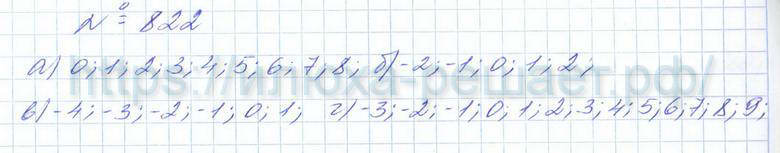 № 822
а) 0; 1; 2; 3; 4; 5; 6; 7; 8; б) -2; -1; 0; 1; 2;
https://илюха-решает.рф/
в) -4; -3; -2; -1; 0; 1; г) -3; -2; -1; 0; 1; 2; 3; 4; 5; 6; 7; 8; 9;